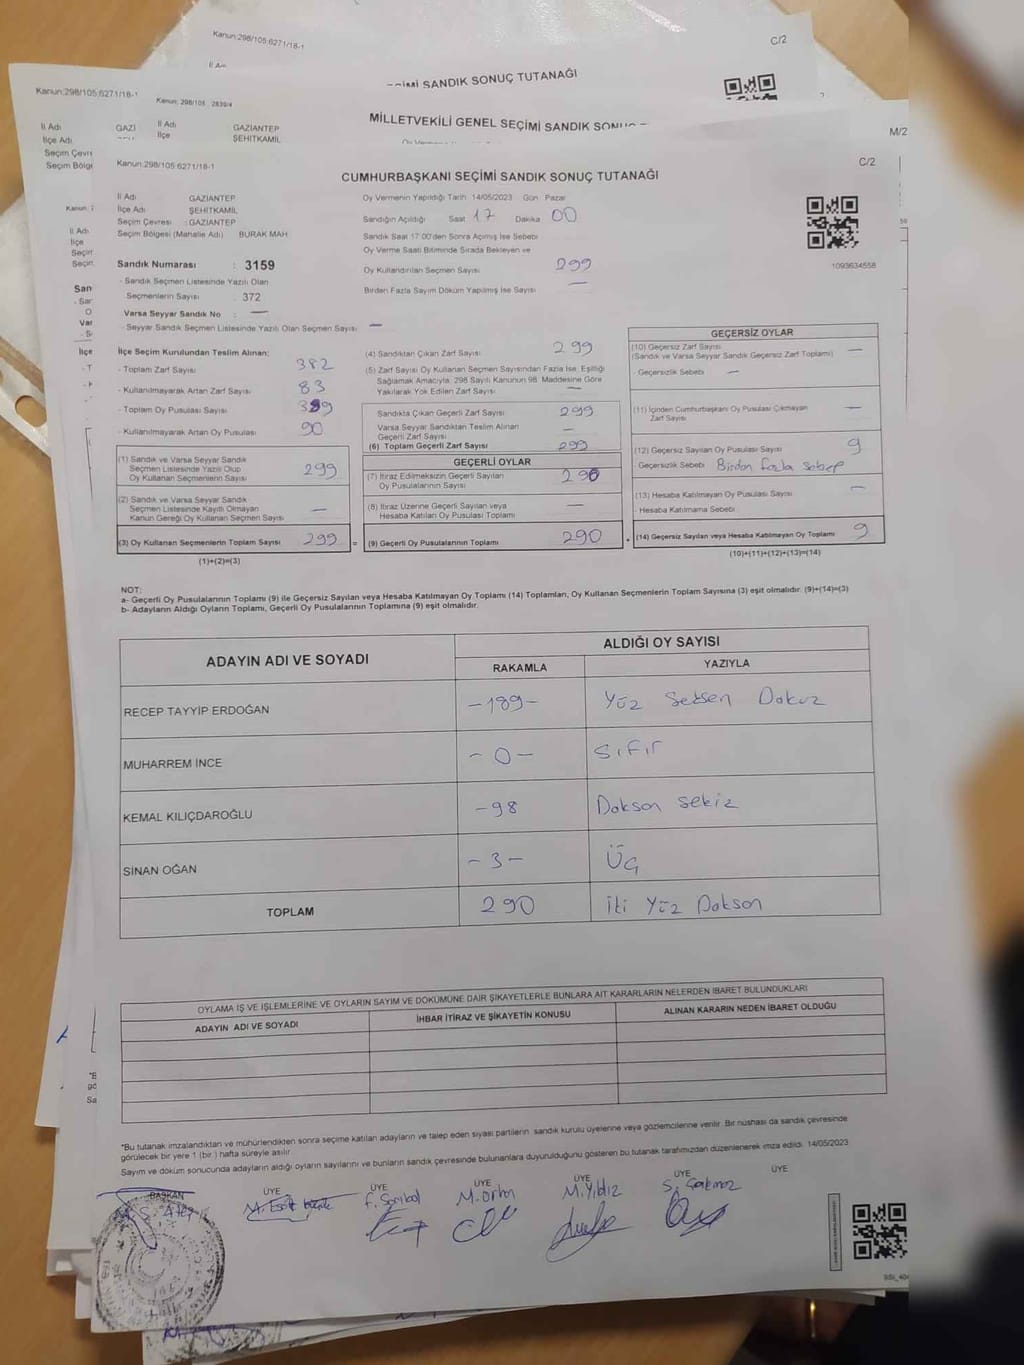 Kanun:298/105:6271/18-1
C/2
SANDIK SONUÇ TUTANAĞI
Kanun:298/105:6271/18-1
Kanun: 298/105 2839/4
İl Adı GAZİ
İlçe Adı
Seçim Çevr
Seçim Bölge
İl Adı GAZİANTEP
İlçe ŞEHİTKAMİL
MİLLETVEKİLİ GENEL SEÇİMİ SANDIK
M/2
Kanun:298/105:6271/18-1
C/2
CUMHURBAŞKANI SEÇİMİ SANDIK SONUÇ TUTANAĞI
İl Adı GAZİANTEP
İlçe Adı ŞEHİTKAMİL
Seçim Çevresi : GAZİANTEP
Seçim Bölgesi (Mahalle Adı) BURAK MAH
Oy Vermenin Yapıldığı Tarih 14/05/2023 Gün Pazar
Sandığın Açıldığı Saat 17 Dakika 00
Sandık Saat 17:00'den Sonra Açılmış İse Sebebi
Oy Verme Saati Bitiminde Sırada Bekleyen ve
Oy Kullandırılan Seçmen Sayısı 299
Birden Fazla Sayım Döküm Yapılmış İse Sayısı —
1093634558
Sandık Numarası : 3159
- Sandık Seçmen Listesinde Yazılı Olan
Seçmenlerin Sayısı : 372
Varsa Seyyar Sandık No : —
- Seyyar Sandık Seçmen Listesinde Yazılı Olan Seçmen Sayısı : —
İlçe Seçim Kurulundan Teslim Alınan:
- Toplam Zarf Sayısı 382
- Kullanılmayarak Artan Zarf Sayısı 83
- Toplam Oy Pusulası Sayısı 389
- Kullanılmayarak Artan Oy Pusulası 90
(1) Sandık ve Varsa Seyyar Sandık
Seçmen Listesinde Yazılı Olup
Oy Kullanan Seçmenlerin Sayısı 299
(2) Sandık ve Varsa Seyyar Sandık
Seçmen Listesinde Kayıtlı Olmayan
Kanun Gereği Oy Kullanan Seçmen Sayısı —
(3) Oy Kullanan Seçmenlerin Toplam Sayısı 299 =
(1)+(2)=(3)
(4) Sandıktan Çıkan Zarf Sayısı 299
(5) Zarf Sayısı Oy Kullanan Seçmen Sayısından Fazla İse, Eşitliği
Sağlamak Amacıyla, 298 Sayılı Kanunun 98. Maddesine Göre
Yakılarak Yok Edilen Zarf Sayısı —
Sandıkta Çıkan Geçerli Zarf Sayısı 299
Varsa Seyyar Sandıktan Teslim Alınan
Geçerli Zarf Sayısı —
(6) Toplam Geçerli Zarf Sayısı 299
GEÇERLİ OYLAR
(7) İtiraz Edilmeksizin Geçerli Sayılan
Oy Pusulalarının Sayısı 290
(8) İtiraz Üzerine Geçerli Sayılan veya
Hesaba Katılan Oy Pusulası Toplamı —
(9) Geçerli Oy Pusulalarının Toplamı 290 +
GEÇERSİZ OYLAR
(10) Geçersiz Zarf Sayısı —
(Sandık ve Varsa Seyyar Sandık Geçersiz Zarf Toplamı)
- Geçersizlik Sebebi —
(11) İçinden Cumhurbaşkanı Oy Pusulası Çıkmayan
Zarf Sayısı —
(12) Geçersiz Sayılan Oy Pusulası Sayısı 9
Geçersizlik Sebebi Birden fazla sebep
(13) Hesaba Katılmayan Oy Pusulası Sayısı —
- Hesaba Katılmama Sebebi
(14) Geçersiz Sayılan veya Hesaba Katılmayan Oy Toplamı 9
(10)+(11)+(12)+(13)=(14)
NOT:
a- Geçerli Oy Pusulalarının Toplamı (9) ile Geçersiz Sayılan veya Hesaba Katılmayan Oy Toplamı (14) Toplamları, Oy Kullanan Seçmenlerin Toplam Sayısına (3) eşit olmalıdır. (9)+(14)=(3)
b- Adayların Aldığı Oyların Toplamı, Geçerli Oy Pusulalarının Toplamına (9) eşit olmalıdır.
ADAYIN ADI VE SOYADI
ALDIĞI OY SAYISI
RAKAMLA YAZIYLA
RECEP TAYYİP ERDOĞAN -189- Yüz Seksen Dokuz
MUHARREM İNCE -0- Sıfır
KEMAL KILIÇDAROĞLU -98 Doksan sekiz
SİNAN OĞAN -3- Üç
TOPLAM 290 iki Yüz Doksan
OYLAMA İŞ VE İŞLEMLERİNE VE OYLARIN SAYIM VE DÖKÜMÜNE DAİR ŞİKAYETLERLE BUNLARA AİT KARARLARIN NELERDEN İBARET BULUNDUKLARI
ADAYIN ADI VE SOYADI İHBAR İTİRAZ VE ŞİKAYETİN KONUSU ALINAN KARARIN NEDEN İBARET OLDUĞU
*Bu tutanak imzalandıktan ve mühürlendikten sonra seçime katılan adayların ve talep eden siyasi partilerin sandık kurulu üyelerine veya gözlemcilerine verilir. Bir nüshası da sandık çevresinde
görülecek bir yere 1 (bir) hafta süreyle asılır.
Sayım ve döküm sonucunda adayların aldığı oyların sayılarını ve bunların sandık çevresinde bulunanlara duyurulduğunu gösteren bu tutanak tarafımızdan düzenlenerek imza edildi. 14/05/2023
BAŞKAN ÜYE ÜYE ÜYE ÜYE ÜYE ÜYE
M. Orhn M. Yıldız